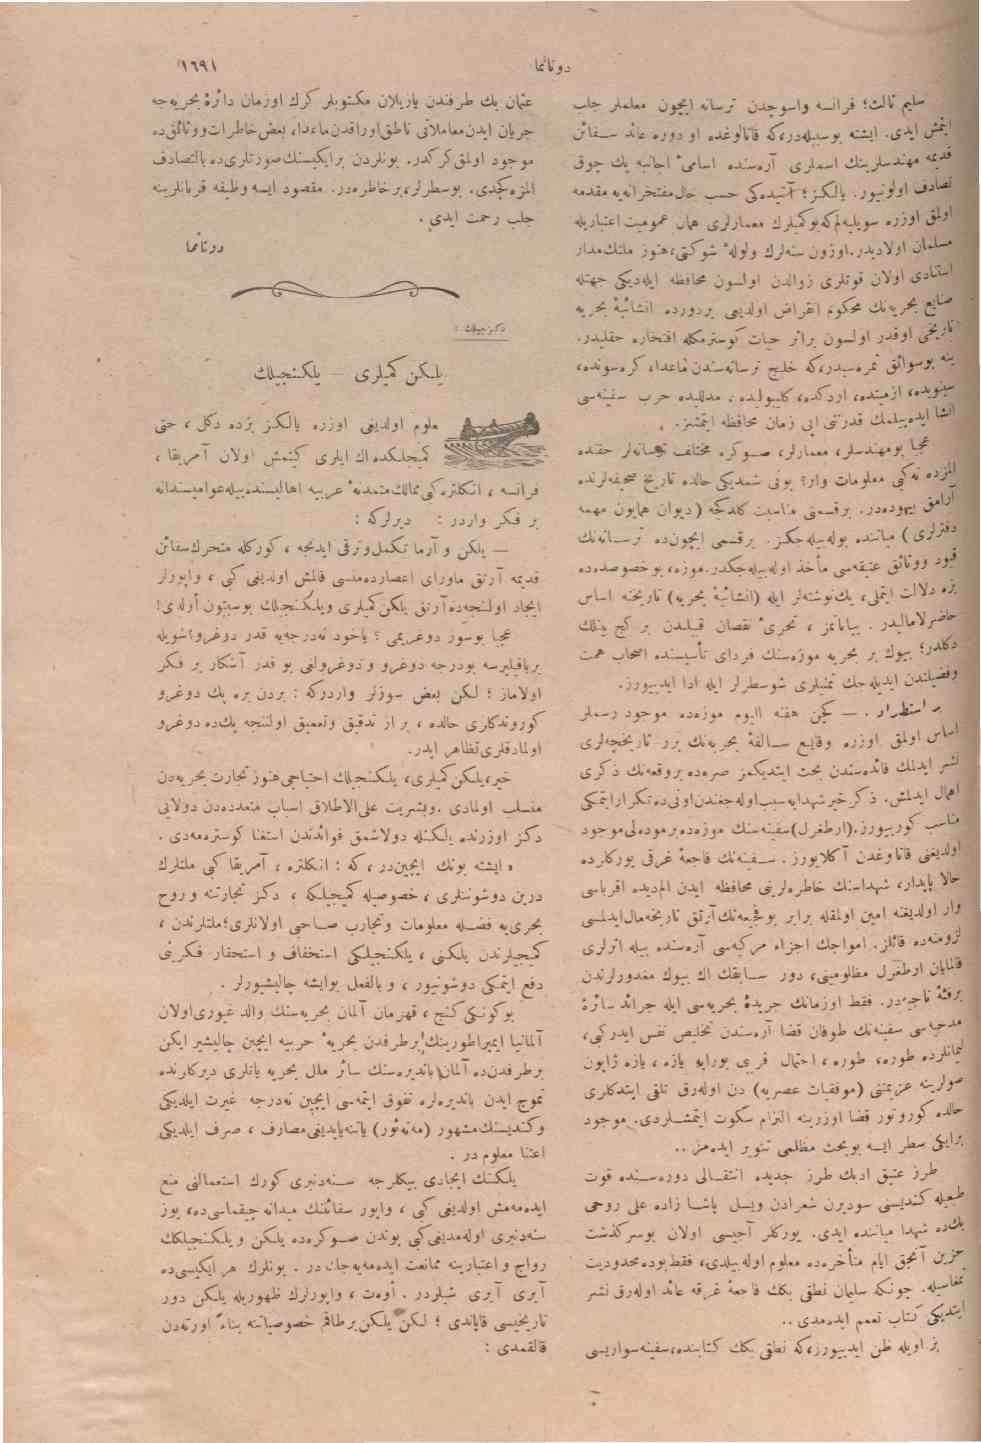 دوننما
١٦٩١
سليم ثالث؛ فرانسه واسوجدن ترسانه ايچون معلملر جلب
ايتمش ايدى. ايشته بوسببله‌دركه قاتالوغده او دوره عائد سفائن
قديمه مهندسلرينك اسملرى آره‌سنده اسامئ اجانبه پك چوق
تصادف اولونيور. يالكز؛ آتيده‌كى حسب حال مفتخرانه‌يه مقدمه
اولمق اوزره سويليه‌لم كه بوكميلرك معمارلرى همان عموميت اعتباريله
مسلمان اولاديدر. اوزون سنه‌لرك ولوله شوكتى، هنوز ملتك مدار
استنادى اولان قوتلرى زوالدن اولسون محافظه ايله‌ديكى جهتله
صنايع بحريه‌نك محكوم انقراض اولديغى بر دورده انشائيهٔ بحريه
تاريخى اوقدر اولسون برائر حيات كوسترمكله افتخاره حقليدر.
ينه بوسوائق ثمره‌سيدركه خليج ترسانه‌سندن ماعدا، كره‌سونده،
سينوبده، ازميتده، اردكده، كليبوليده، مدلليده حرب سفينه‌سى
انشا ايده‌بيلمك قدرتنى اپى زمان محافظه ايتمشز.
عجبا بومهندسلر، معمارلر، صوكره مختلف تيجانه‌لر حقنده
المزده نه‌كبى معلومات وار؟ بونى شمديكى حالده تاريخ صحيفه‌لرنده
آرامق بيهوده‌در. برقسمنى مناسبت كلدكجه (ديوان همايون مهمه
دفترلرى) مياننده بوله‌بيله‌جكز. برقسمى ايچون‌ده ترسانه‌نك
قيود ووثائق عتيقه‌سى مأخذ اوله‌بيله‌جكدر. موزه، بوخصوصده‌ده
بزه دلالت ايتملى، يك‌نوشته‌لر ايله (انشائيهٔ بحريه) تاريخنه اساس
حاضرلاماليدر. بياناتمز، تحرئ نقصان قبيلندن بر كج بينلك
دكلدر؛ بيوك بر بحريه موزه‌سنك فرداى تأسيسنده اصحاب همت
وفضيلتدن ايديله‌جك تمنيلرى شوسطرلر ايله ادا ايديورز.
بر استطراد. — كچن هفته اليوم موزه‌ده موجود رسملر
اساس اولمق اوزره وقايع سالفهٔ بحريه‌نك برر تاريخچه‌لرى
نشر ايدلمك فائده‌سندن بحث ايتديكمز صره‌ده بروقعه‌نك ذكرى
اهمال ايدلمش. ذكر خير شهدايه سبب اوله‌جغندن اونى ده تكرار ايتمكى
مناسب كورييورز. (ارطغرل) سفينه‌سنك موزه‌ده برموده‌لى موجود
اولديغنى قاتاوغدن آكلايورز. سفينه‌نك فاجعهٔ غرقى يوركلرده
حالا پايدار، شهداسنك خاطره‌لرينى محافظه ايدن الم‌ديده اقرباسى
وار اولديغنه امين اولمقله برابر بوفجيعه‌نك آرتق تاريخه مال ايدلمسى
لزومنه‌ده قائلز. امواجك اجزاء مركبه‌سى آره‌سنده بيله اثرلرى
قالمايان ارطغرل مظلومينى، دور سابقك اك بيوك مغدورلرندن
برفئهٔ ناجيه‌در. فقط اوزمانك جريدهٔ بحريه‌سى ايله جرائد سائرهٔ
مدحيه‌سى سفينه‌نك طوفان قضا آره‌سندن تخليص نفس ايدركبى،
ليمانلرده طوره، طوره، احتمال قربى بورايه يازه، يازه ژاپون
صولرينه عزيمتنى (موفقيات عصريه) دن اوله‌رق تلقى ايتدكلرى
حالده كورونور قضا اوزرينه التزام سكوت ايتمشلردى. موجود
برايكى سطر ايسه بوبحث مظلمى تنوير ايده‌مز..
طرز عتيق ادبك طرز جديده انتقالى دوره‌سنده قوت
طبعيله كنديسنى سوديرن شعرادن ويسل پاشا زاده على روحى
بك‌ده شهدا مياننده ايدى. يوركلر آجيسى اولان بوسركذشت
حزين آنجق ايام متأخره‌ده معلوم اوله‌بيلدى، فقط بوده محدوديت
تفاصيله. چونكه سليمان نطقى بكك فاجعهٔ غرقه عائد اوله‌رق نشر
ايتديكى كتاب تعمم ايده‌مدى..
بز اويله ظن ايديورزكه نطقى بكك كتابنده، سفينه سواريسى
عثمان بك طرفندن يازيلان مكتوبلر كرك اوزمان دائرهٔ بحريه‌جه
جريان ايدن معاملاتى ناطق اوراقدن ماعدا، بعض خاطرات ووثائق ده
موجود اولمق كركدر. بونلردن برايكيسنك صورتلرى‌ده بالتصادف
المزه كچدى. بوسطرلر، برخاطره‌در. مقصود ايسه وظيفه قربانلرينه
جلب رحمت ايدى.
دوننما
دكزجيلك:
يلكن كميلرى — يلكنجيلك
معلوم اولديغى اوزره يالكز بزده دكل، حتى
كميجلكده اك ايلرى كيتمش اولان آمريقا،
فرانسه، انكلتره كبى ممالك متمدنهٔ غربيه اهاليسنده بيله عوامپسندانه
بر فكر واردر: ديرلركه:
— يلكن و آرما تكمل وترقى ايدنجه، كوركله متحرك سفائن
قديمه آرتق ماوراى اعصارده منسى قالمش اولديغى كبى، واپورلر
ايجاد اولنجه‌ده آرتق يلكن كميلرى ويلكنجيلك بوسبتون اولدى!
عجبا بوسوز دوغريمى؟ ياخود نه‌درجه‌يه قدر دوغرو؟ شويله
برباقيليرسه بودرجه دوغرو ودوغرولغى بو قدر آشكار بر فكر
اولاماز؛ لكن بعض سوزلر واردركه: بردن بره پك دوغرو
كوروندكلرى حالده، براز تدقيق وتعميق اولننجه پك‌ده دوغرو
اولمادقلرى تظاهر ايدر.
خير، يلكن كميلرى، يلكنجيلك احتياجى هنوز تجارت بحريه‌دن
منسلب اولمادى. وبشريت على الاطلاق اسباب متعدده‌دن دولايى
دكز اوزرنده يلكنله دولاشمق فوائدندن استغنا كوستره‌مه‌دى.
ايشته بونك ايچين‌در، كه: انكلتره، آمريقا كبى ملتلرك
درين دوشونلرى، خصوصيله كميجيلكه، دكز تجارتنه و روح
بحرى‌يه فضله معلومات وتجارب صاحبى اولانلرى؛ ملتلرندن،
كميجيلرندن يلكنى، يلكنجيلكى استخفاف و استحقار فكرينى
دفع ايتمكى دوشونيور، و بالفعل بوايشه چاليشيورلر.
بوكونكى كنج، قهرمان آلمان بحريه‌سنك والد غيورى اولان
آلمانيا ايمپراطورينك برطرفدن بحريهٔ حربيه ايچين چاليشير ايكن
برطرفدن‌ده آلمان بانديره‌سنك سائر ملل بحريه يانلرى ديركلرنده
تموج ايدن بانديره‌لره تفوق ايتمه‌سى ايچين نه‌درجه غيرت ايلديكى
وكنديسنك مشهور (مه‌ته‌ئور) ياتنه ياپديغى مصارف، صرف ايلديكى
اعتنا معلوم در.
يلكنك ايجادى بيكلرجه سنه‌دنبرى كورك استعمالنى منع
ايده‌مه‌مش اولديغى كبى، واپور سفائننك ميدانه چيقماسى‌ده، يوز
سنه‌دنبرى اوله‌مديغى كبى بوندن صوكره‌ده يلكن ويلكنجيلكك
رواج و اعتبارينه ممانعت ايده‌مه‌يه‌جك در. بونلرك هر ايكيسى‌ده
آيرى آيرى شيلردر. أوه‌ت، واپورلرك ظهوريله يلكن دور
تاريخيسى قاپاندى؛ لكن يلكن برطاقم خصوصياتنه بناءً اورته‌دن
قالقمدى: